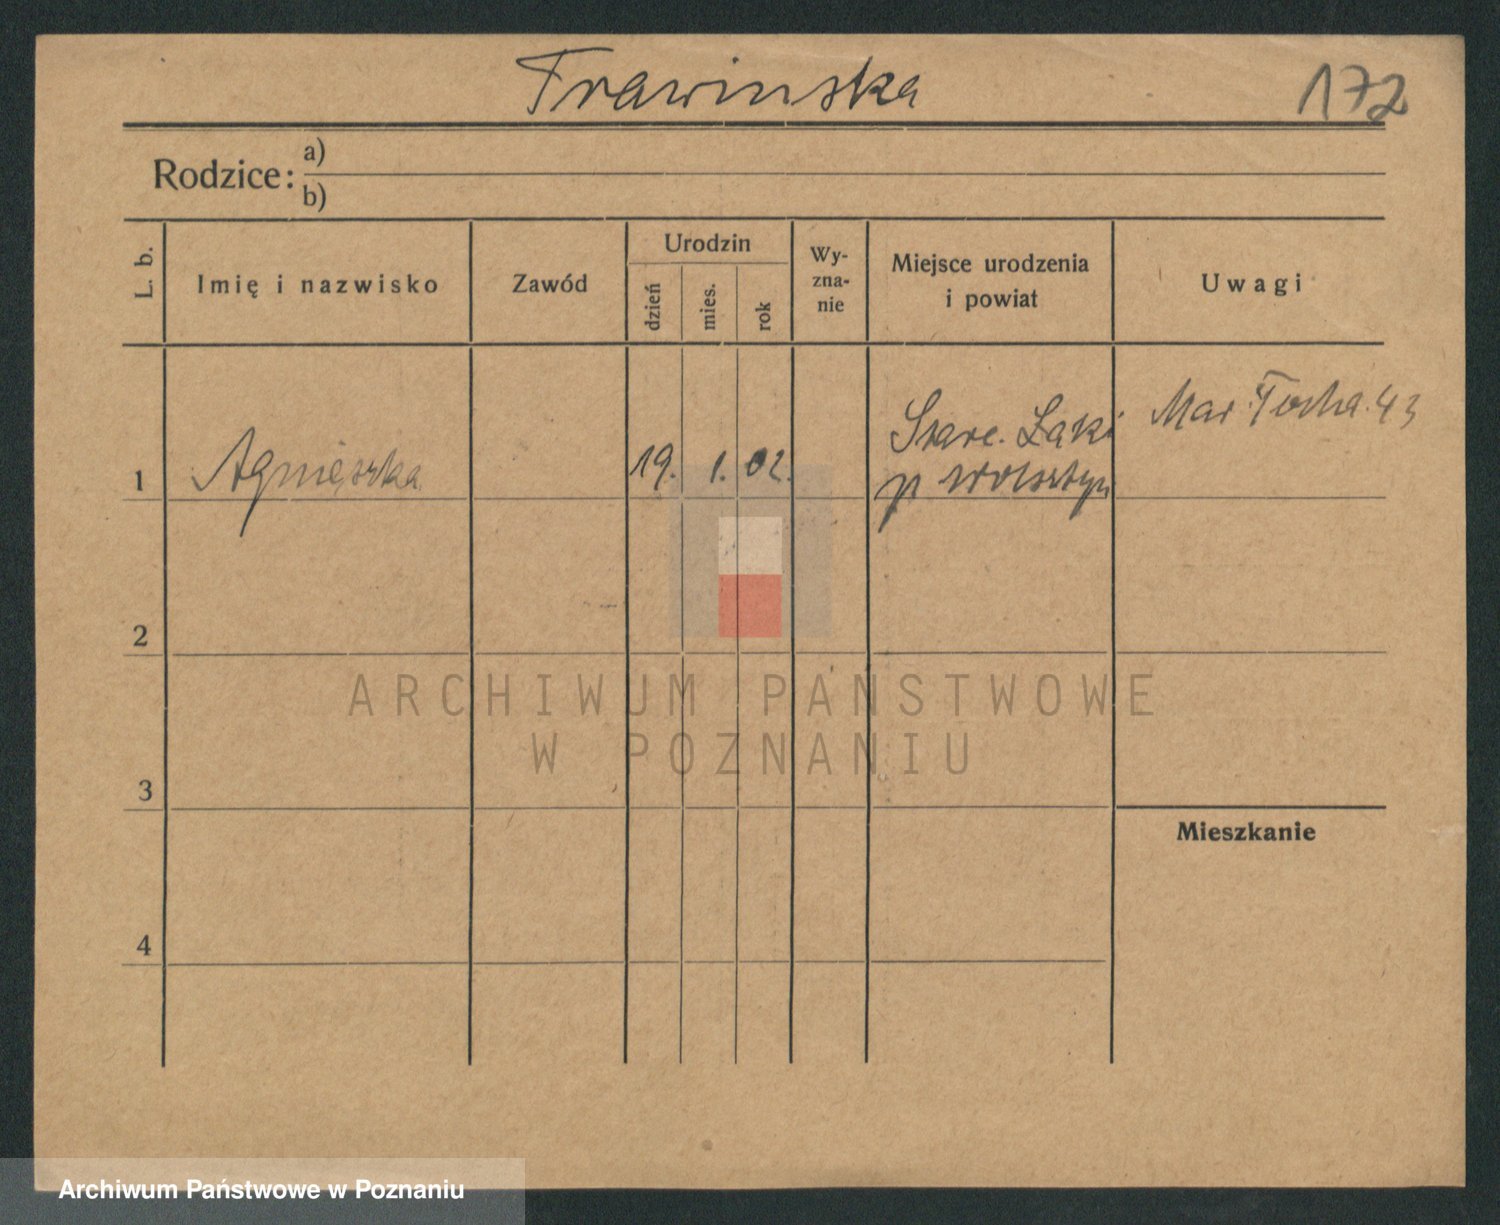 Trawinska 172
Rodzice: a)
b)
L. b. Imię i nazwisko Zawód Urodzin dzień mies. rok Wy-zna-nie Miejsce urodzenia i powiat Uwagi
Stare. Łąki Mar. 43
1 Agnieszka 19. 1. 02. p Wolsztyn
2
ARCHIWUM PAŃSTWOWE
W POZNANIU
3
Mieszkanie
4
Archiwum Państwowe w Poznaniu